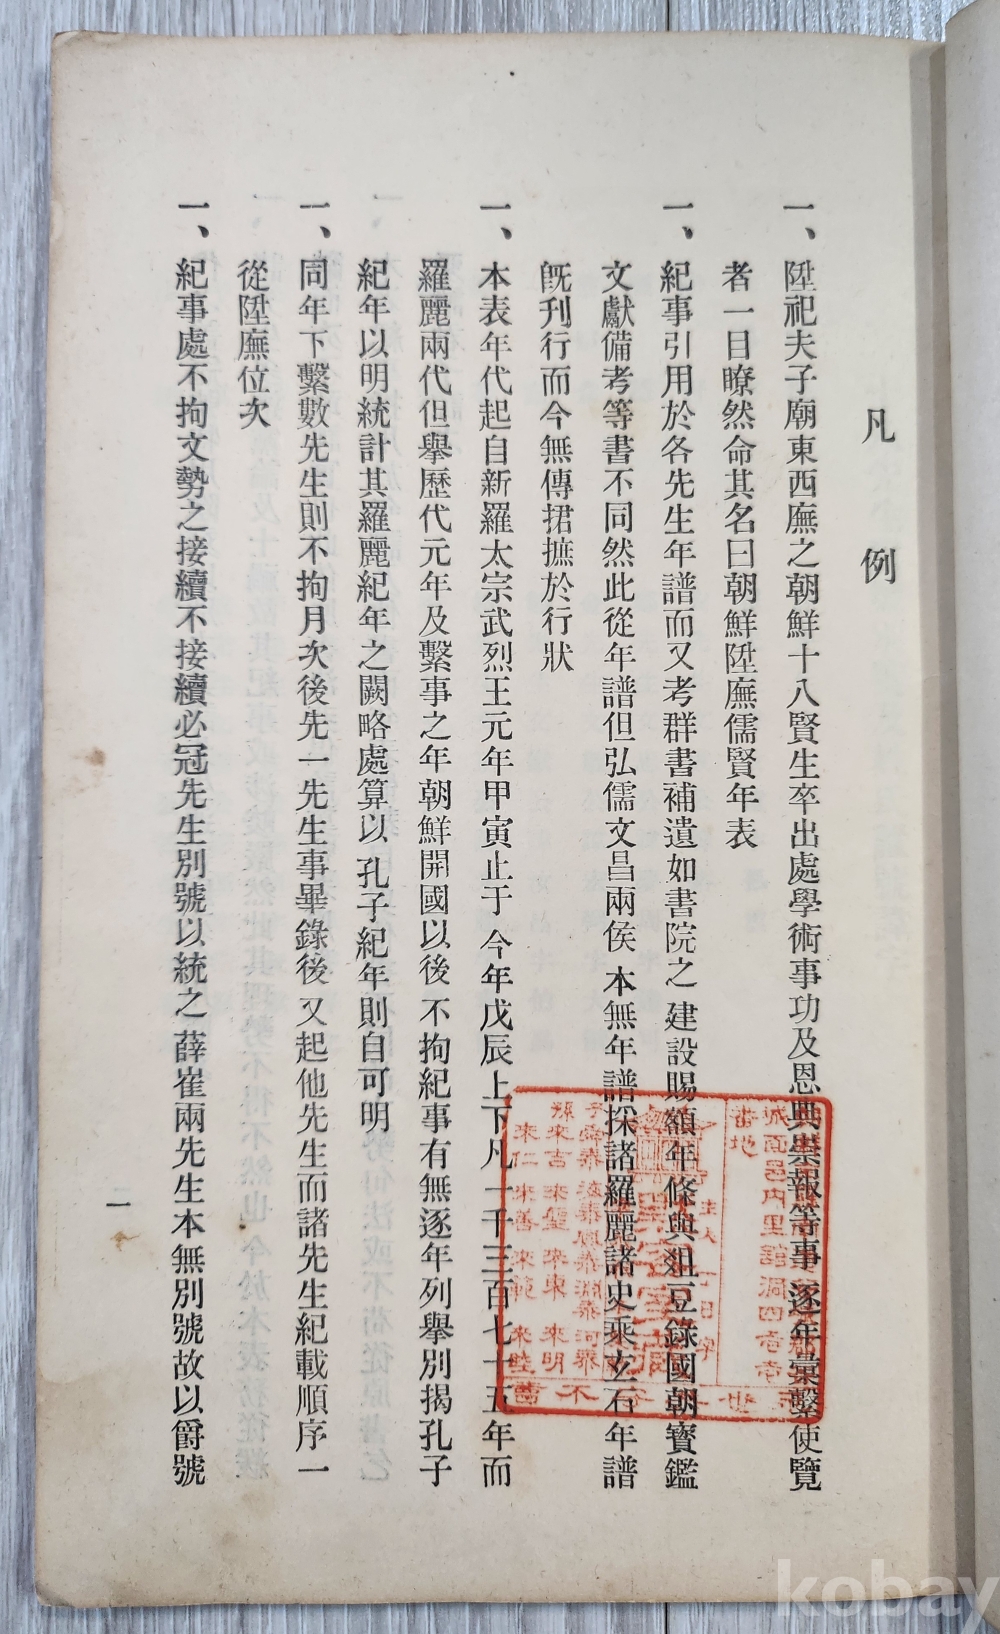 凡例
一、陞祀夫子廟東西廡之朝鮮十八賢生卒出處學術事功及恩典崇報等事逐年彙繫使覽
者一目瞭然命其名曰朝鮮陞廡儒賢年表
一、紀事引用於各先生年譜而又考群書補遺如書院之建設賜額年條與俎豆錄國朝寶鑑
文獻備考等書不同然此從年譜但弘儒文昌兩侯本無年譜採諸羅麗諸史乘玄石年譜
旣刊行而今無傳捃摭於行狀
一、本表年代起自新羅太宗武烈王元年甲寅止于今年戊辰上下凡一千三百七十五年而
羅麗兩代但擧歷代元年及繫事之年朝鮮開國以後不拘紀事有無逐年列擧別揭孔子
紀年以明統計其羅麗紀年之闕略處算以孔子紀年則自可明
一、同年下繫數先生則不拘月次後先一先生事畢錄後又起他先生而諸先生紀載順序一
從陞廡位次
一、紀事處不拘文勢之接續不接續必冠先生別號以統之薛崔兩先生本無別號故以爵號
二
城面邑內里舘洞四壱壱
番地
來吉 來聖 來東 來明
來仁 來善 來範 來睦
kobay